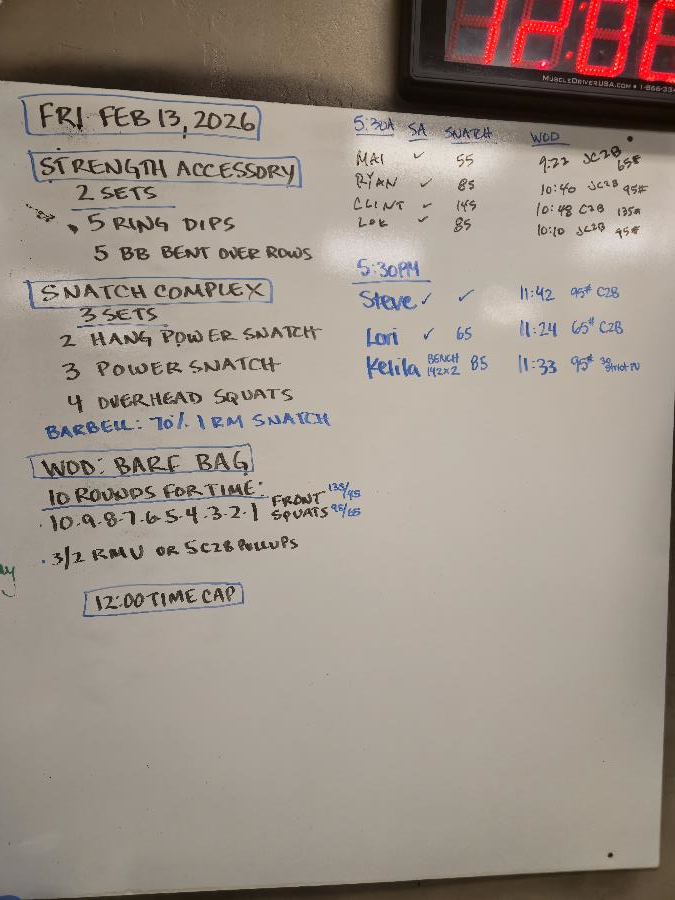 12:00
MUSCLEDRIVERUSA.COM • 1-866-33
FRI FEB 13, 2026
STRENGTH ACCESSORY
2 SETS
5 RING DIPS
5 BB BENT OVER ROWS
SNATCH COMPLEX
3 SETS
2 HANG POWER SNATCH
3 POWER SNATCH
4 OVERHEAD SQUATS
BARBELL: 70% 1RM SNATCH
WOD: BARF BAG
10 ROUNDS FOR TIME:
· 10-9-8-7-6-5-4-3-2-1 FRONT SQUATS 135/95 95/65
· 3/2 RMU OR 5 C2B PULLUPS
12:00 TIME CAP
5:30A SA SNATCH WOD
MAI ✓ 55 9:22 JC2B 65#
RYAN ✓ 85 10:40 JC2B 95#
CLINT ✓ 145 10:48 C2B 135#
LOK ✓ 85 10:10 JC2B 95#
5:30PM
Steve ✓ ✓ 11:42 95# C2B
Lori ✓ 65 11:24 65# C2B
Kelila BENCH 142x2 85 11:33 95# Strict PU